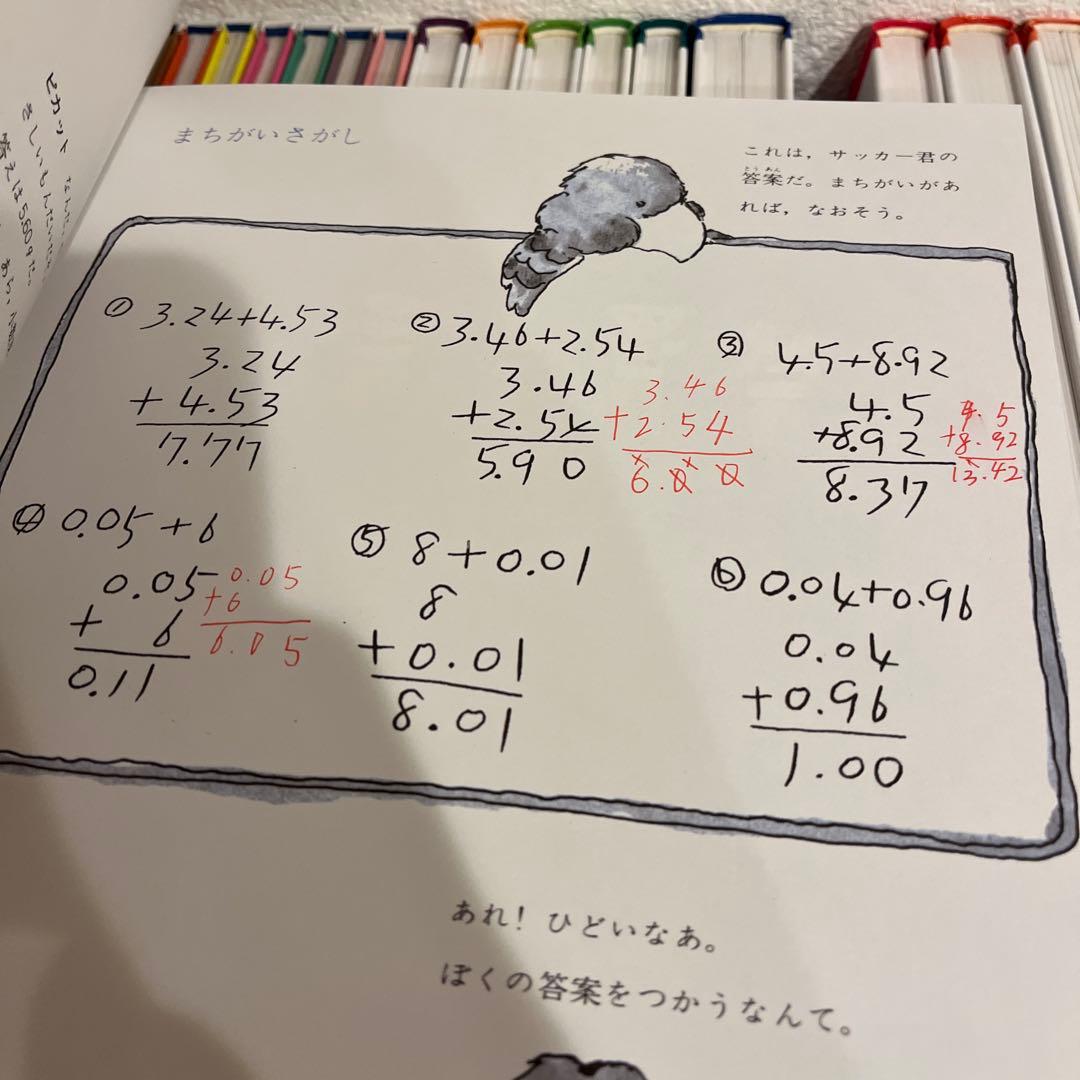 まちがいさがし
これは，サッカー君の
とうあん
答案だ。まちがいがあ
れば，なおそう。
① 3.24+4.53
3.24
+ 4.53
7.77
② 3.46+2.54
3.46
+2.54
5.90
3.46
+2.54
6.00
③ 4.5+8.92
4.5
+8.92
8.37
4.5
+8.92
13.42
④ 0.05+6
0.05
+ 6
0.11
0.05
+6
6.05
⑤ 8+0.01
8
+0.01
8.01
⑥ 0.04+0.96
0.04
+0.96
1.00
あれ！ひどいなあ。
ぼくの答案をつかうなんて。
ピカット
答えは560gだ。